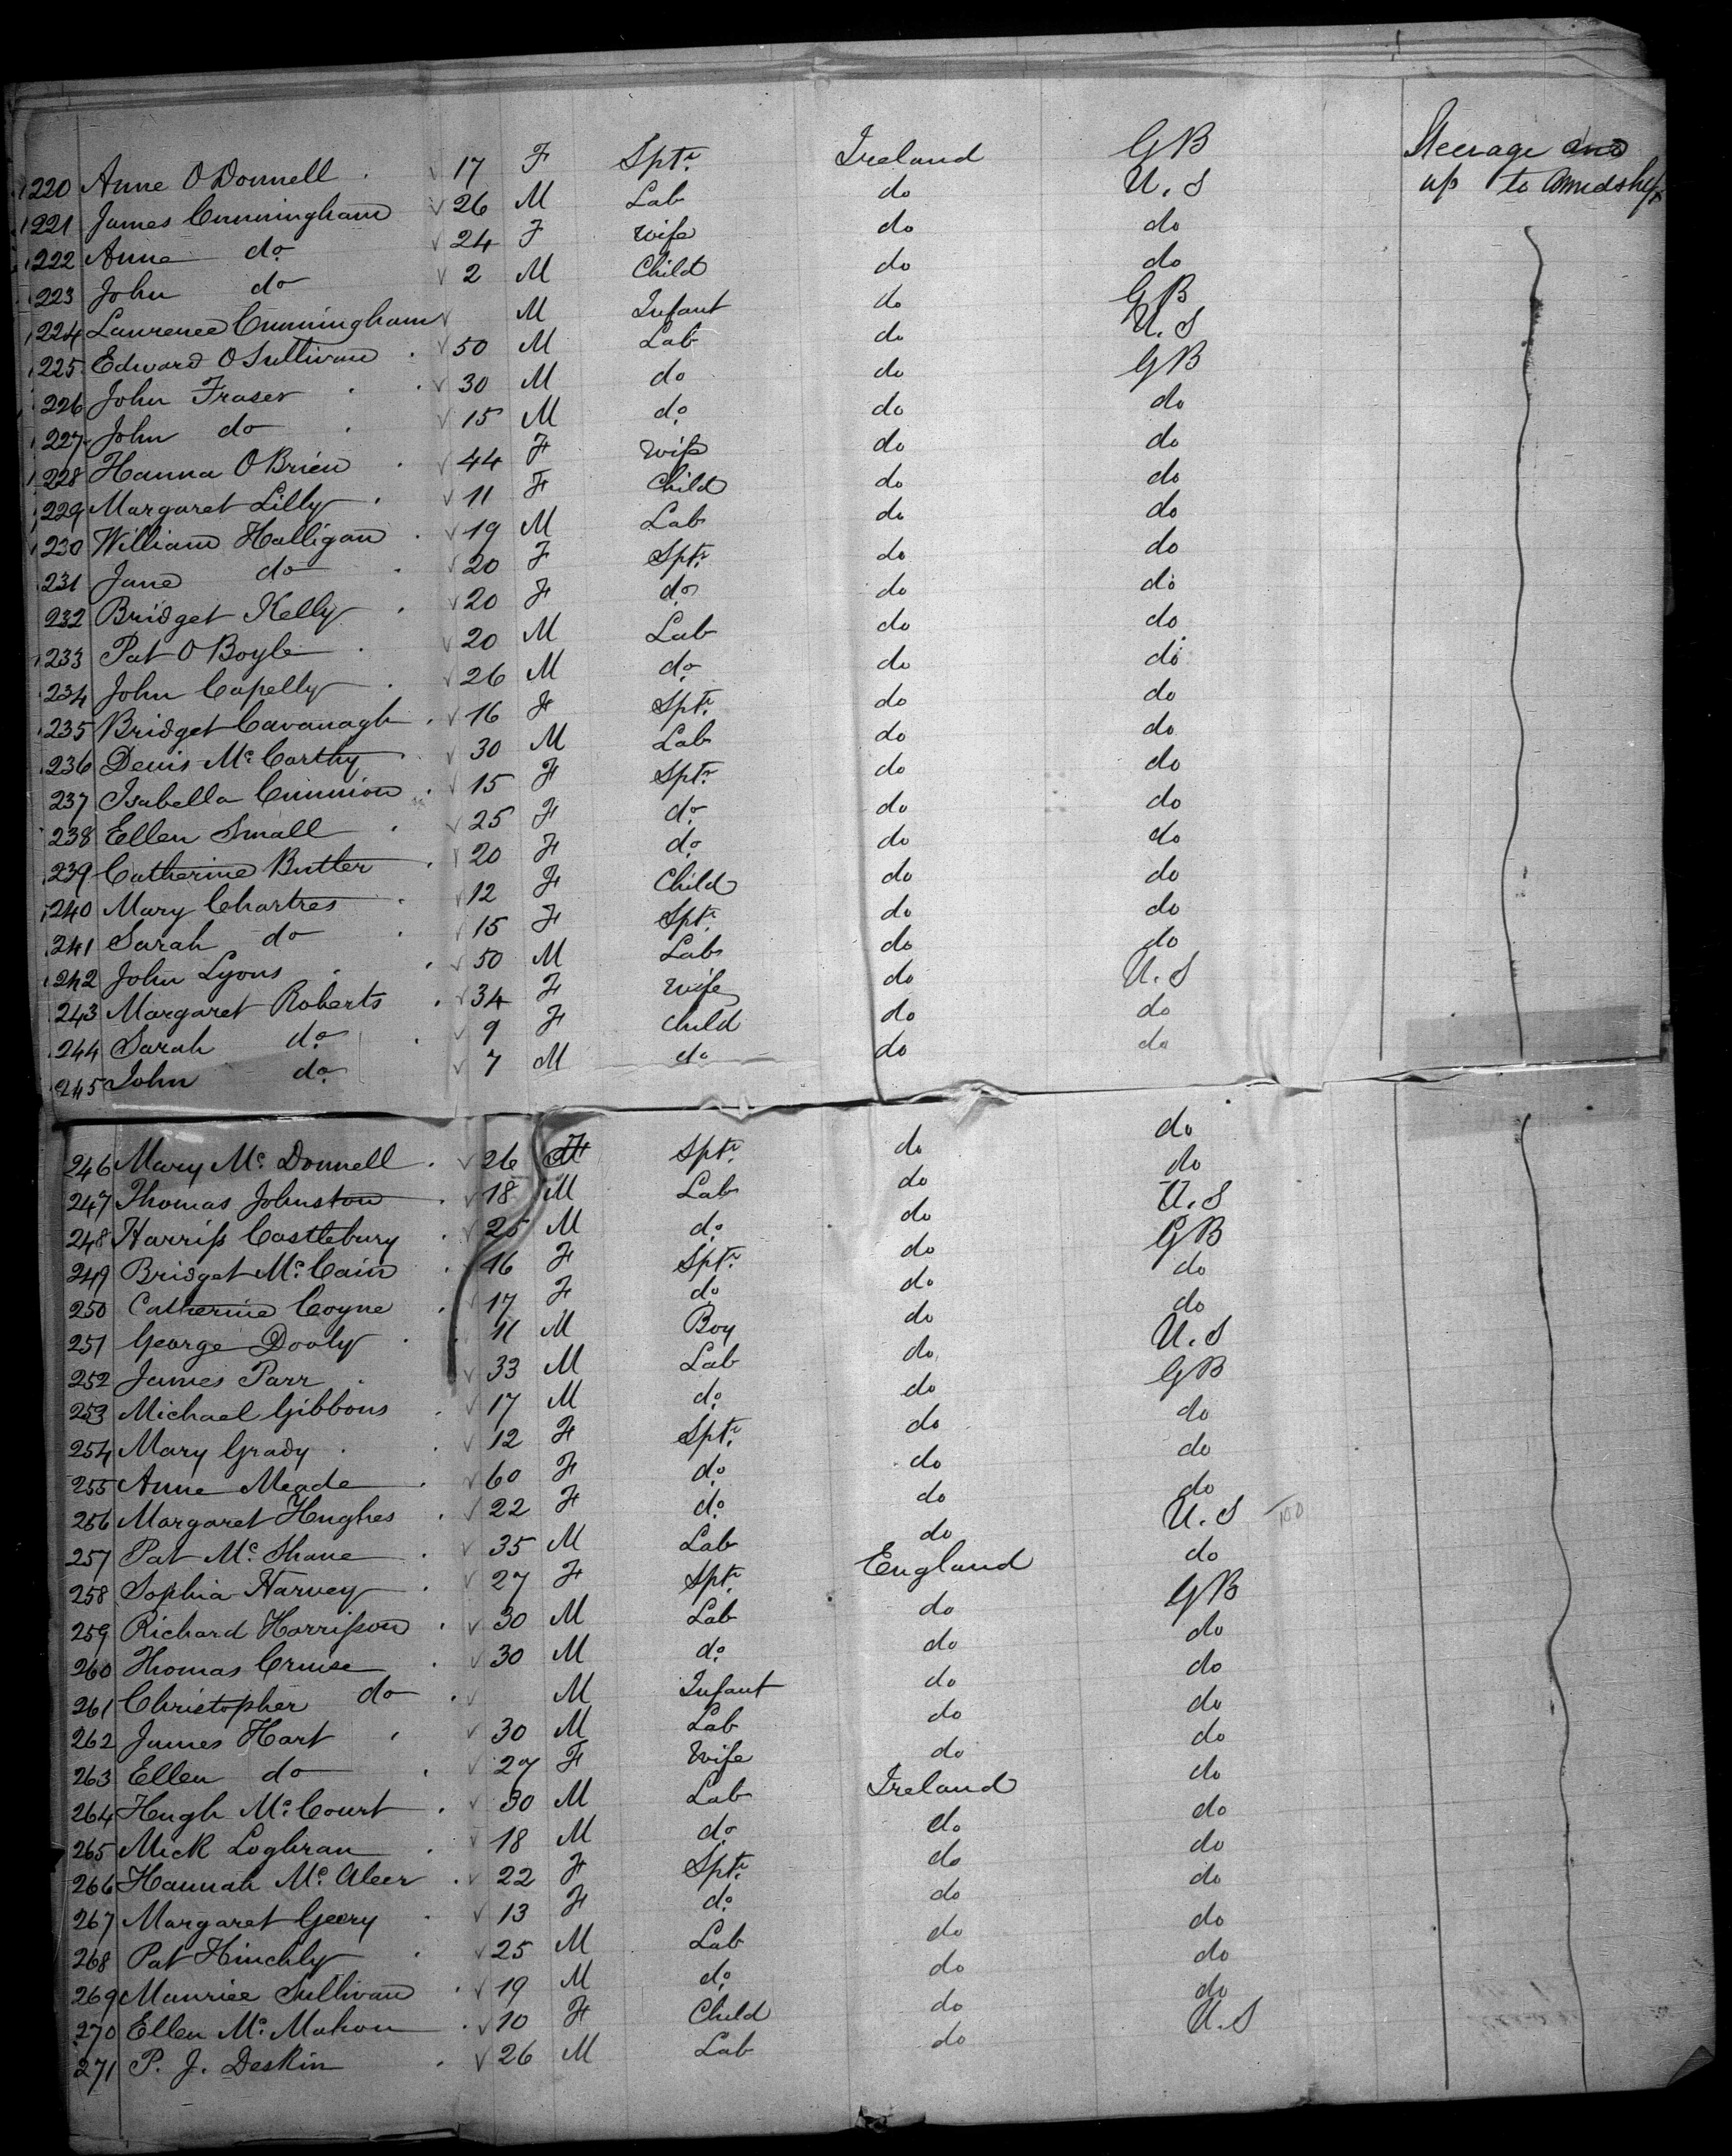 220 Anne O Donnell 17 F Sptr Ireland GB Steerage and
221 James Cunningham 26 M Lab do U.S up to Amidships
222 Anne do 24 F wife do do
223 John do 2 M Child do do
224 Laurence Cunningham M Infant do GB
225 Edward O Sullivan 50 M Lab do U.S
226 John Fraser 30 M do do GB
227 John do 15 M do do do
228 Hanna O Brien 44 F wife do do
229 Margaret Lilly 11 F Child do do
230 William Halligan 19 M Lab do do
231 Jane do 20 F Sptr do do
232 Bridget Kelly 20 F do do do
233 Pat O Boyle 20 M Lab do do
234 John Capelly 26 M do do do
235 Bridget Cavanagh 16 F Sptr do do
236 Denis Mc Carthy 30 M Lab do do
237 Isabella Cunnion 15 F Sptr do do
238 Ellen Small 25 F do do do
239 Catherine Butler 20 F do do do
240 Mary Chartres 12 F Child do do
241 Sarah do 15 F Sptr do do
242 John Lyons 50 M Lab do do
243 Margaret Roberts 34 F Wife do U.S
244 Sarah do 9 F child do do
245 John do 7 M do do do
246 Mary Mc Donnell 26 F Sptr do do
247 Thomas Johnston 18 M Lab do do
248 Harriss Castlebury 25 M do do U.S
249 Bridget Mc Cain 16 F Sptr do GB
250 Catherine Coyne 17 F do do do
251 George Dooly 11 M Boy do do
252 James Parr 33 M Lab do U.S
253 Michael Gibbons 17 M do do GB
254 Mary Grady 12 F Sptr do do
255 Anne Meade 60 F do do do
256 Margaret Hughes 22 F do do do
257 Pat Mc Shane 35 M Lab do U.S
258 Sophia Harvey 27 F Sptr England do
259 Richard Harrisson 30 M Lab do GB
260 Thomas Cruise 30 M do do do
261 Christopher do M Infant do do
262 James Hart 30 M Lab do do
263 Ellen do 27 F Wife do do
264 Hugh Mc Court 30 M Lab Ireland do
265 Mick Loghran 18 M do do do
266 Hannah Mc Aleer 22 F Sptr do do
267 Margaret Geery 13 F do do do
268 Pat Hinchly 25 M Lab do do
269 Maurice Sullivan 19 M do do do
270 Ellen Mc Mahon 10 F Child do do
271 P. J. Deskin 26 M Lab do U.S